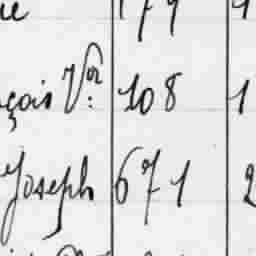 çois Vor: 108 1
Joseph 671 2